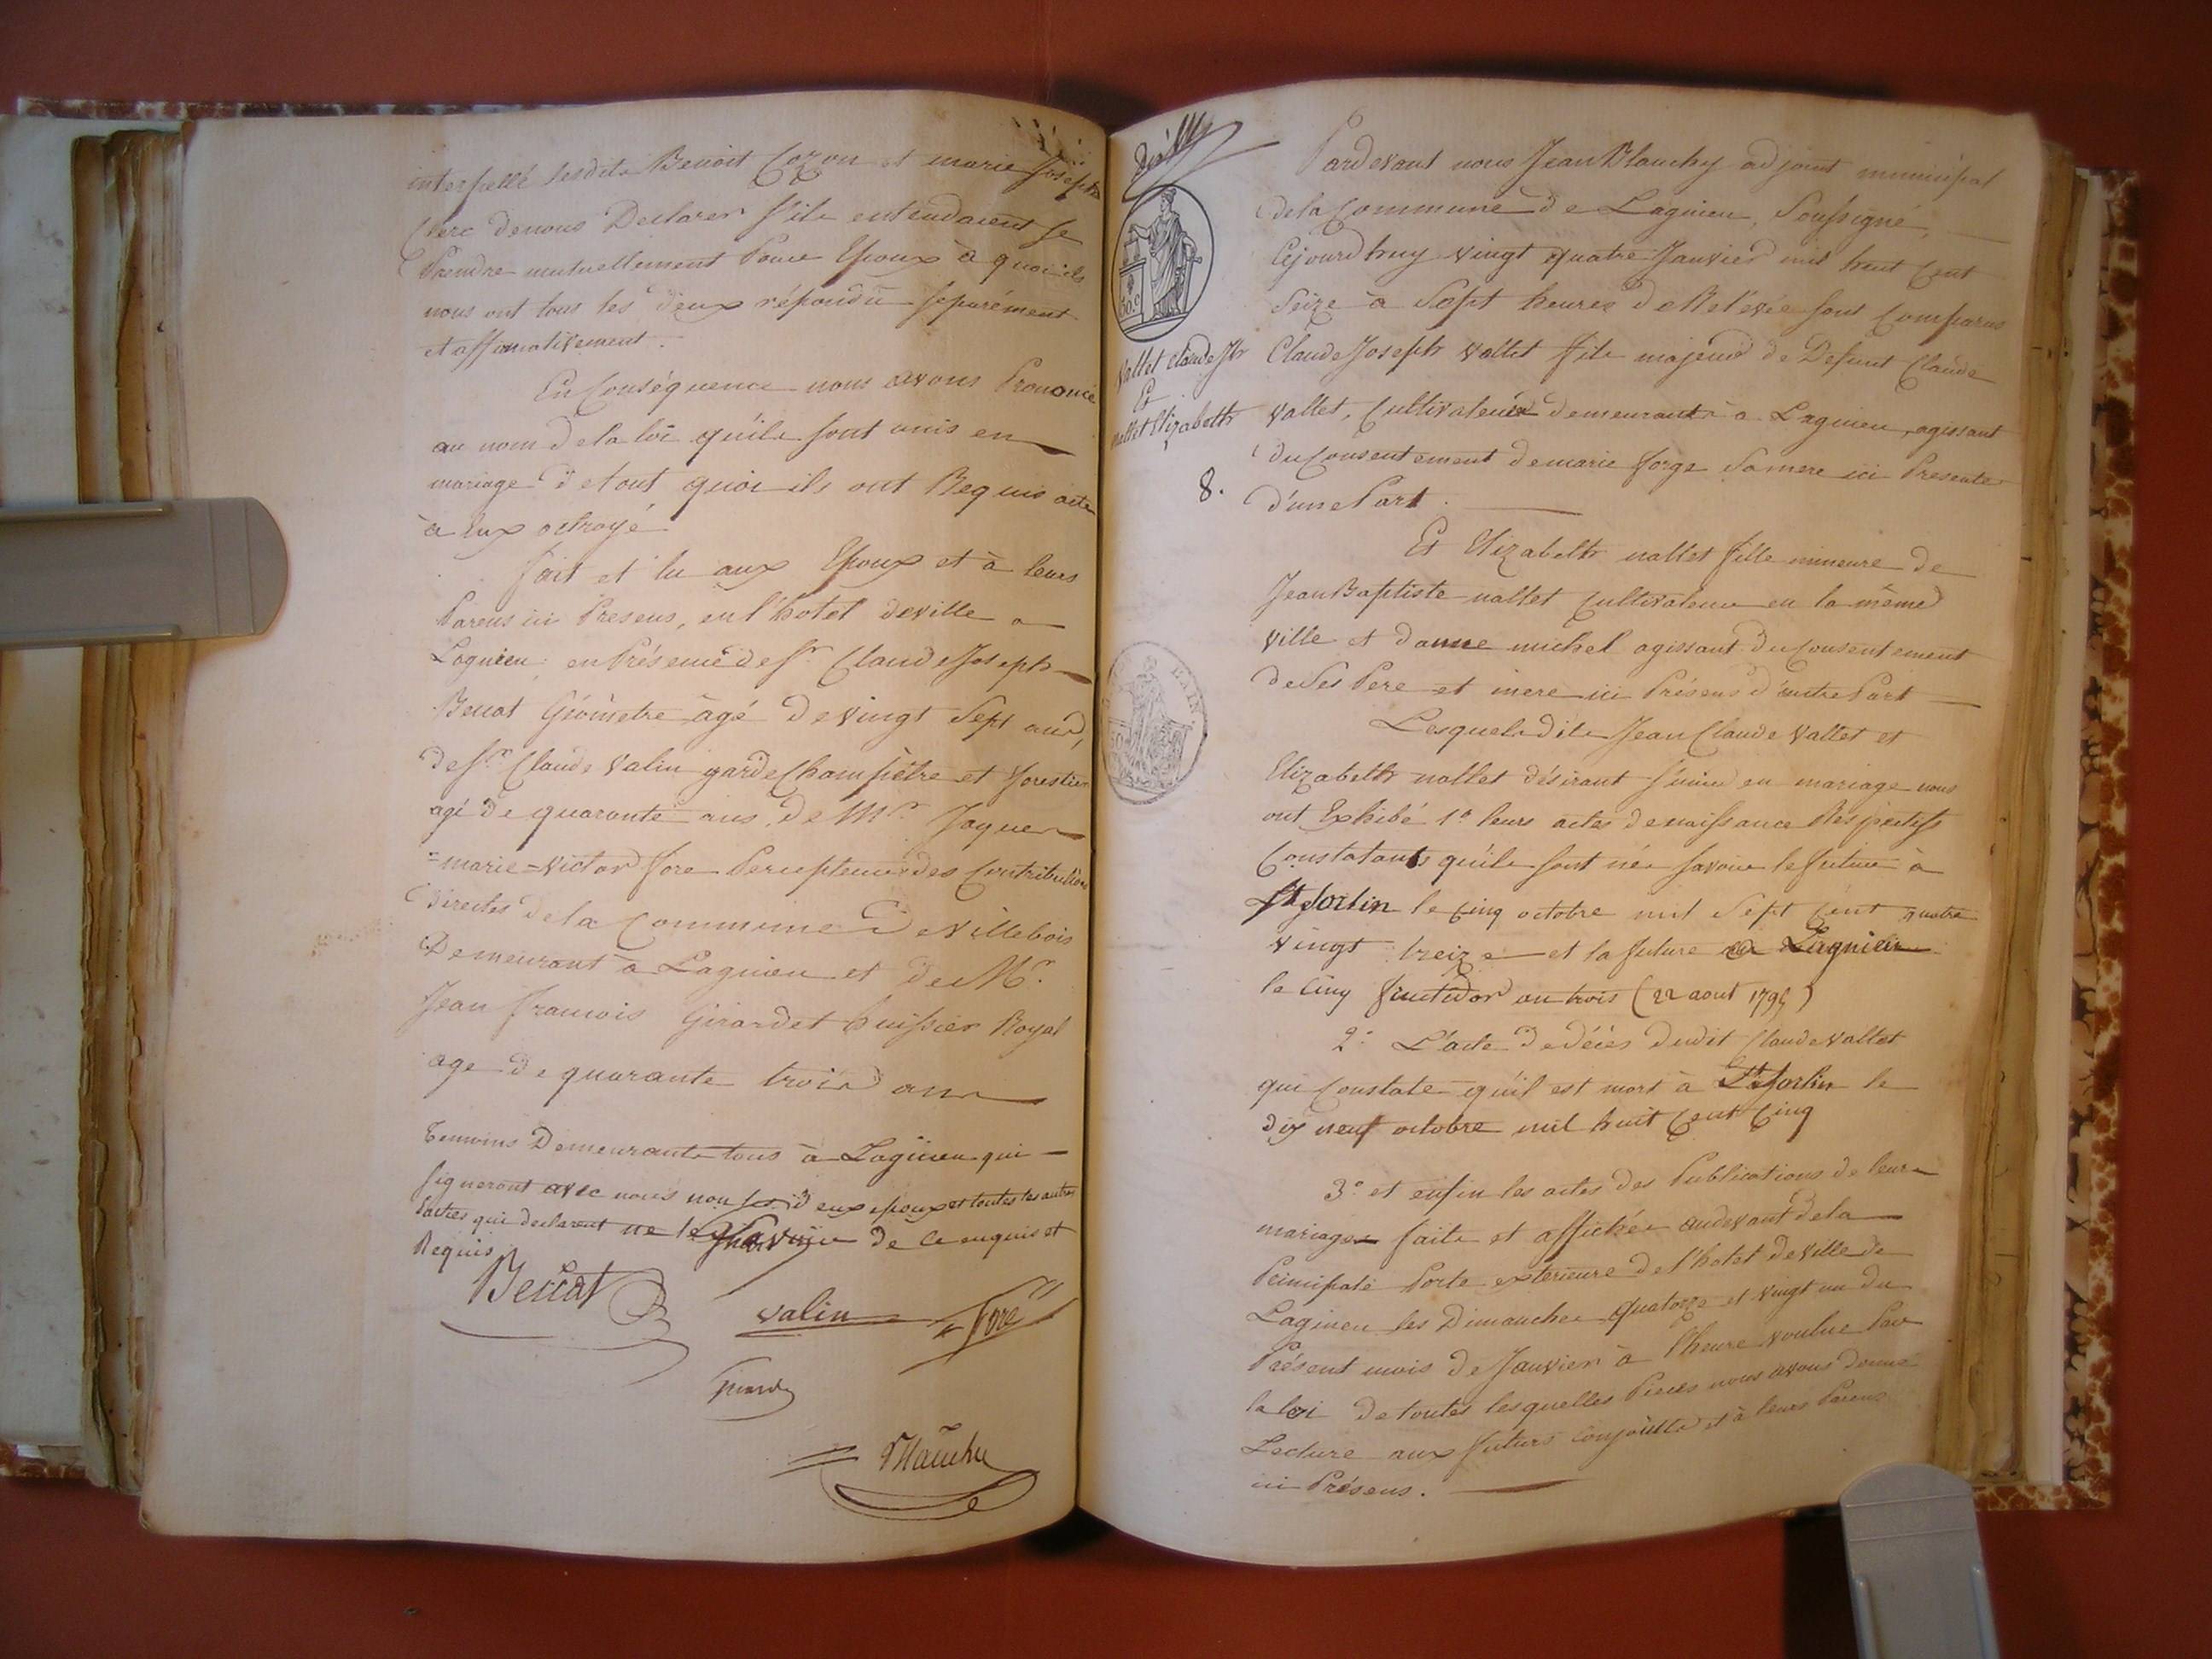 interpellé lesdits Benoit Cozon et marie Josephte
Clerc denous Declarer s'ils entendaient se
Prendre mutuellement Pour Epoux à quoi ils
nous ont tous les deux répondu séparément
et affirmativement.
En Conséquence nous avons Prononcé
au nom de la loi qu'ils sont unis en
mariage de tout quoi ils ont Requis acte
à eux octroyé
fait et lu aux Epoux et à leurs
Parens ici Presens, en l'hotel deville a
Lagnieu, en Présence de Sr. Claude Joseph
Géomètre âgé de vingt Sept ans,
de Sr. Claude Valin garde Champêtre et forestier
agé de quarante ans, de Mr. Jaques
=marie=victor fore Percepteur des Contributions
directes de la Commune de villebois
Demeurant à Lagnieu et de Mr.
Jean francois Girardet huissier Royal
age de quarante trois ans
Temoins Demeurants tous à Lagnieu qui
signeront avec nous non les deux epoux et toutes les autres
Parties qui declarent ne le savoir de ce enquis et
Requis
valin fore
Pardevant nous Jean Blanchy adjoint municipal
de la Commune de Lagnieu, Soussigné,
Cejourd'huy vingt quatre Janvier mil huit Cent
Seize à Sept heures de Relévée sont Comparus
Vallet Claude Jh
Et
nallet Elizabeth
8.
Claude Joseph Vallet fils majeur de Defunt Claude
Vallet, Cultivateurs demeurants à Lagnieu, agissant
du Consentement de marie forge Sa mere ici Presente
d'une Part.
Et Elizabeth nallet fille mineure de
Jean Baptiste nallet Cultivateur en la même
ville et d'anne michel agissant du Consentement
de Ses Pere et mere ici Présens d'autre Part
Lesquels dits Jean Claude Vallet et
Elizabeth nallet désirant s'unir en mariage nous
ont Exhibé 1° leurs actes de naissance Respectifs
Constatants qu'ils sont nés savoir le futur à
St Sorlin le cinq octobre mil Sept Cent quatre
vingt treize et la future à Lagnieu
le cinq fructidor an trois (22 aout 1795)
2° L'acte de décès dudit Claude Vallet
qui Constate qu'il est mort à St Sorlin le
dix neuf octobre mil huit Cent Cinq
3° et enfin les actes des Publications de leur
mariage faits et affichés audevant de la
Principale Porte exterieure de l'hotel deville de
Lagnieu les Dimanches quatorze et vingt un du
Présent mois de Janvier à l'heure voulue Par
la loi de toutes lesquelles Pieces nous avons donné
Lecture aux futurs conjoints et à leurs Parens
ici Présens.